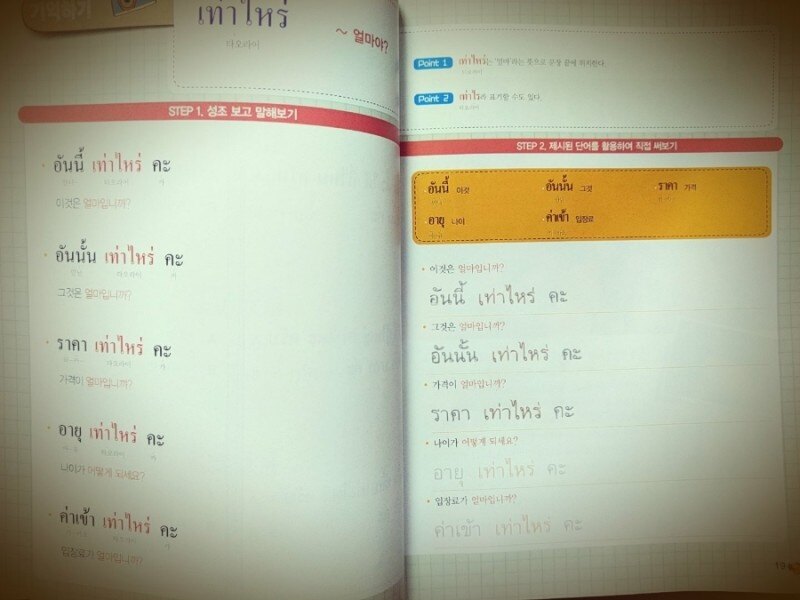 기억하기
เท่าไหร่
타오라이
~ 얼마야?
STEP 1. 성조 보고 말해보기
อันนี้ เท่าไหร่ คะ
안니 타오라이 카
이것은 얼마입니까?
อันนั้น เท่าไหร่ คะ
안난 타오라이 카
그것은 얼마입니까?
ราคา เท่าไหร่ คะ
타오라이 카
가격이 얼마입니까?
อายุ เท่าไหร่ คะ
타오라이 카
나이가 어떻게 되세요?
ค่าเข้า เท่าไหร่ คะ
타오라이 카
입장료가 얼마입니까?
Point 1 เท่าไหร่는 '얼마'라는 뜻으로 문장 끝에 위치한다.
타오라이
Point 2 เท่าไร라 표기할 수도 있다.
타오라이
STEP 2. 제시된 단어를 활용하여 직접 써보기
อันนี้ 이것 อันนั้น 그것 ราคา 가격
อายุ 나이 ค่าเข้า 입장료
이것은 얼마입니까?
อันนี้ เท่าไหร่ คะ
그것은 얼마입니까?
อันนั้น เท่าไหร่ คะ
가격이 얼마입니까?
ราคา เท่าไหร่ คะ
나이가 어떻게 되세요?
อายุ เท่าไหร่ คะ
입장료가 얼마입니까?
ค่าเข้า เท่าไหร่ คะ